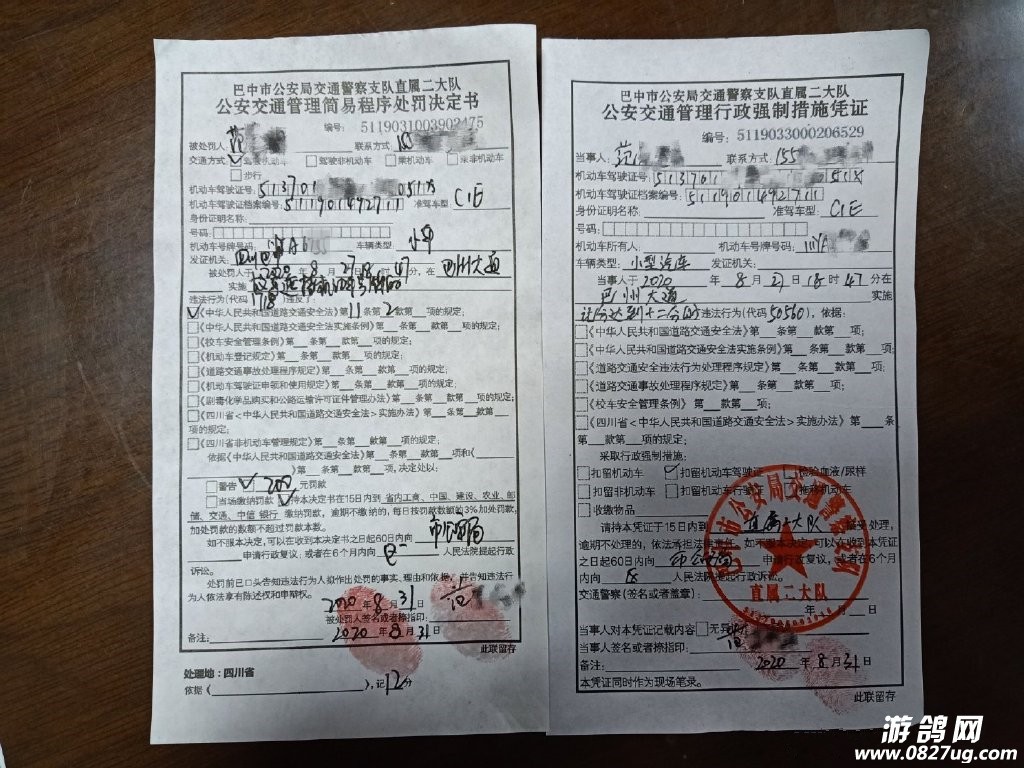 巴中市公安局交通警察支队直属二大队
公安交通管理简易程序处罚决定书
编号: 5119031003902475
被处罚人: 范 联系方式:
交通方式: 驾驶机动车 驾驶非机动车 乘机动车 乘非机动车
步行
机动车驾驶证号: 513701 051X
机动车驾驶证档案编号: 511901492711 准驾车型: C1E
身份证明名称:
号码:
机动车号牌号码: 川YA6 车辆类型: 小车
发证机关: 四川巴中
被处罚人于 2020 年 8 月 27 18 47 分, 在 巴州大道
实施 故意遮挡机动车号牌的
违法行为(代码 1718 )违反了:
《中华人民共和国道路交通安全法》第 11 条第 2 款第 项的规定;
《中华人民共和国道路交通安全法实施条例》第 条第 款第 项的规定;
《校车安全管理条例》第 条第 款第 项的规定;
《机动车登记规定》第 条第 款第 项的规定;
《道路交通事故处理程序规定》第 条第 款第 项的规定;
《机动车驾驶证申领和使用规定》第 条第 款第 项的规定;
《剧毒化学品购买和公路运输许可证件管理办法》第 条第 款第 项的规定;
《四川省<中华人民共和国道路交通安全法>实施办法》第 条第 款第
项的规定;
《四川省非机动车管理规定》第 条第 款第 项的规定;
依据《中华人民共和国道路交通安全法》第 条第 款第 项和《
》第 条第 款第 项, 决定处以:
警告 200 元罚款
当场缴纳罚款 持本决定书在15日内到 省内工商、中国、建设、农业、邮
储、交通、中信 银行 缴纳罚款, 逾期不缴纳的, 每日按罚款数额的3%加处罚款,
加处罚款的数额不超过罚款本数。
如不服本决定, 可以在收到本决定书之日起60日内向 市公安局
申请行政复议; 或者在6个月内向 巴 人民法院提起行政
诉讼。
处罚前已口头告知违法行为人拟作出处罚的事实、理由和依据, 并告知违法行
为人依法享有陈述权和申辩权。
2020 年 8 月 31 日
被处罚人签名或者捺指印: 范
2020 年 8 月 31 日
备注:
此联留存
处理地: 四川省
依据《 》, 记 12 分
巴中市公安局交通警察支队直属二大队
公安交通管理行政强制措施凭证
编号: 5119033000206529
当事人: 范 联系方式: 155
机动车驾驶证号: 513701 051X
机动车驾驶证档案编号: 511901492711
身份证明名称: 准驾车型: C1E
号码:
机动车所有人: 机动车号牌号码: 川YA
车辆类型: 小型汽车 发证机关:
当事人于 2020 年 8 月 27 日 18 时 47 分在
巴州大道 实施
记分达到十二分的 违法行为(代码 50560 ), 依据:
《中华人民共和国道路交通安全法》第 条第 款第 项;
《中华人民共和国道路交通安全法实施条例》第 条第 款第 项;
《道路交通安全违法行为处理程序规定》第 条第 款第 项;
《道路交通事故处理程序规定》第 条第 款第 项;
《校车安全管理条例》第 条第 款第 项;
《四川省<中华人民共和国道路交通安全法>实施办法》第 条
第 款第 项的规定;
采取行政强制措施:
扣留机动车 扣留机动车驾驶证 检验血液/尿样
扣留非机动车 扣留机动车行驶证 拖移机动车
收缴物品
请持本凭证于15日内到 直属二大队 接受处理,
逾期不处理的, 依法承担法律责任。如不服本决定, 可以在收到本凭证
之日起60日内向 市公安局 申请行政复议, 或者在6个月
内向 巴 人民法院提起行政诉讼。
交通警察(签名或者盖章):
年 月 日
当事人对本凭证记载内容 无异议
当事人签名或者捺指印: 范
备注: 2020 年 8 月 31 日
本凭证同时作为现场笔录。
此联留存
巴中市公安局交通警察支队
直属二大队
游鸽网
www.0827ug.com